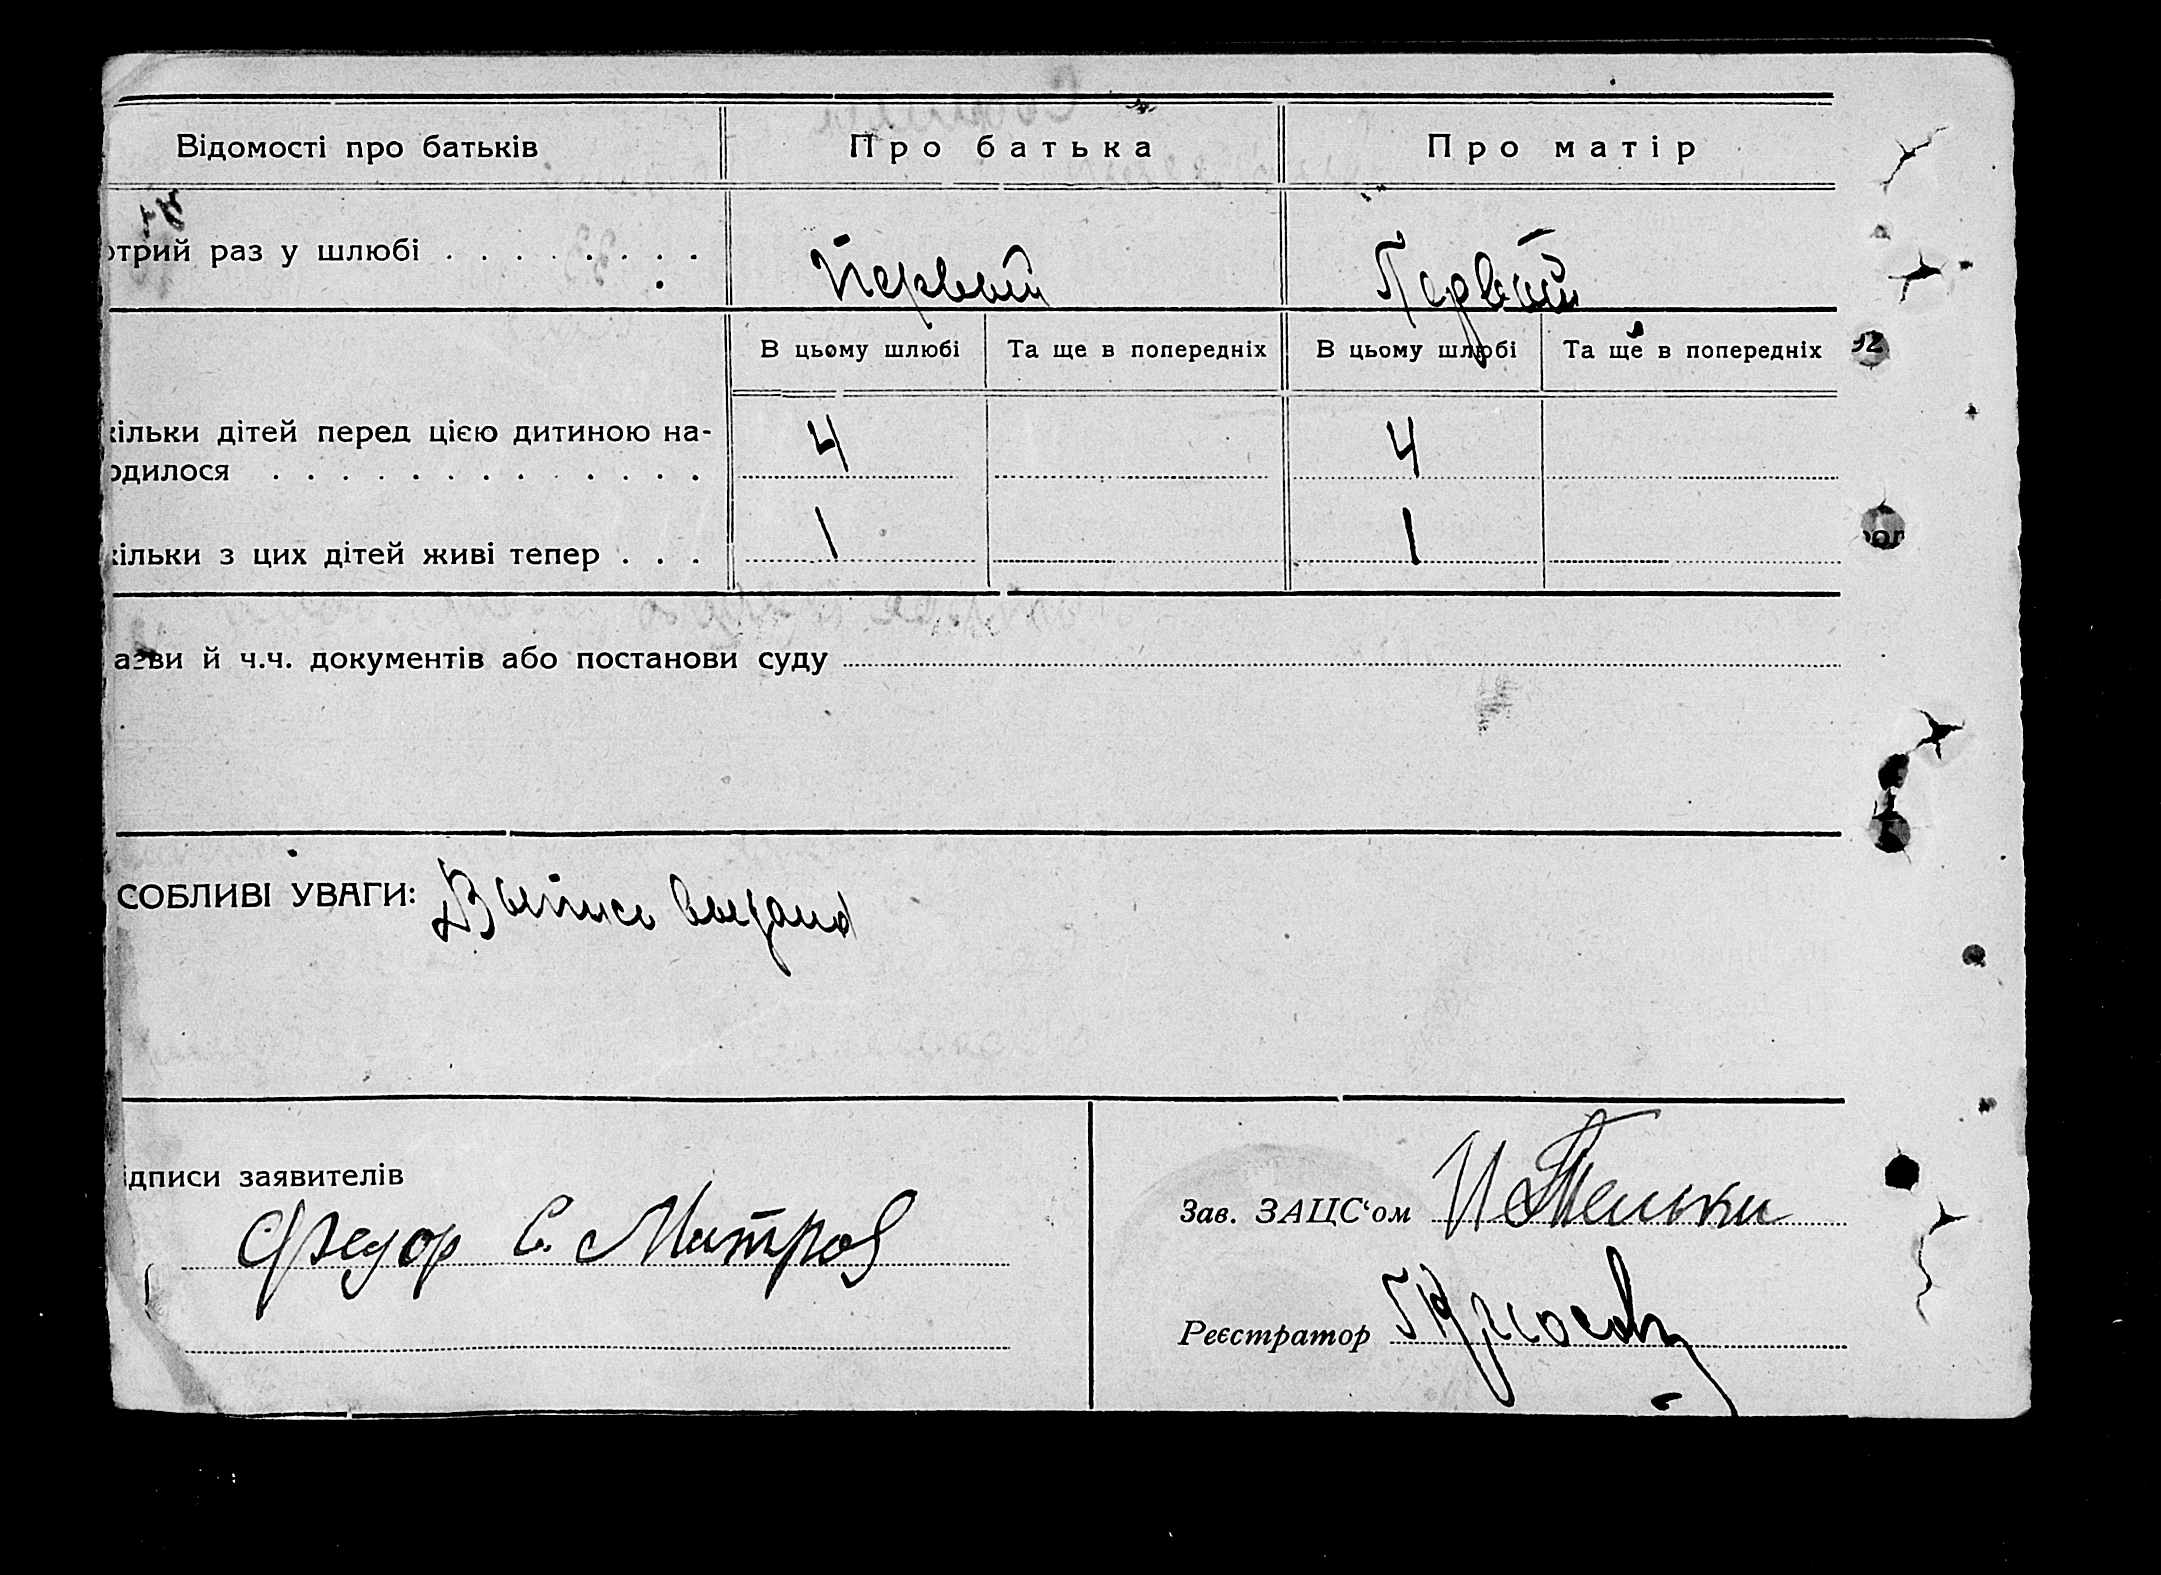 Відомості про батьків Про батька Про матір
отрий раз у шлюбі . . . . . . . . Первый Первый
В цьому шлюбі Та ще в попередніх В цьому шлюбі Та ще в попередніх
кільки дітей перед цією дитиною на-
одилося . . . . . . . . . . . . . 4 4
кільки з цих дітей живі тепер . . . 1 1
азви й ч.ч. документів або постанови суду
СОБЛИВІ УВАГИ: Выпись выдана
ідписи заявителів
Зав. ЗАЦС‘ом
Федор С. Митров
Реєстратор